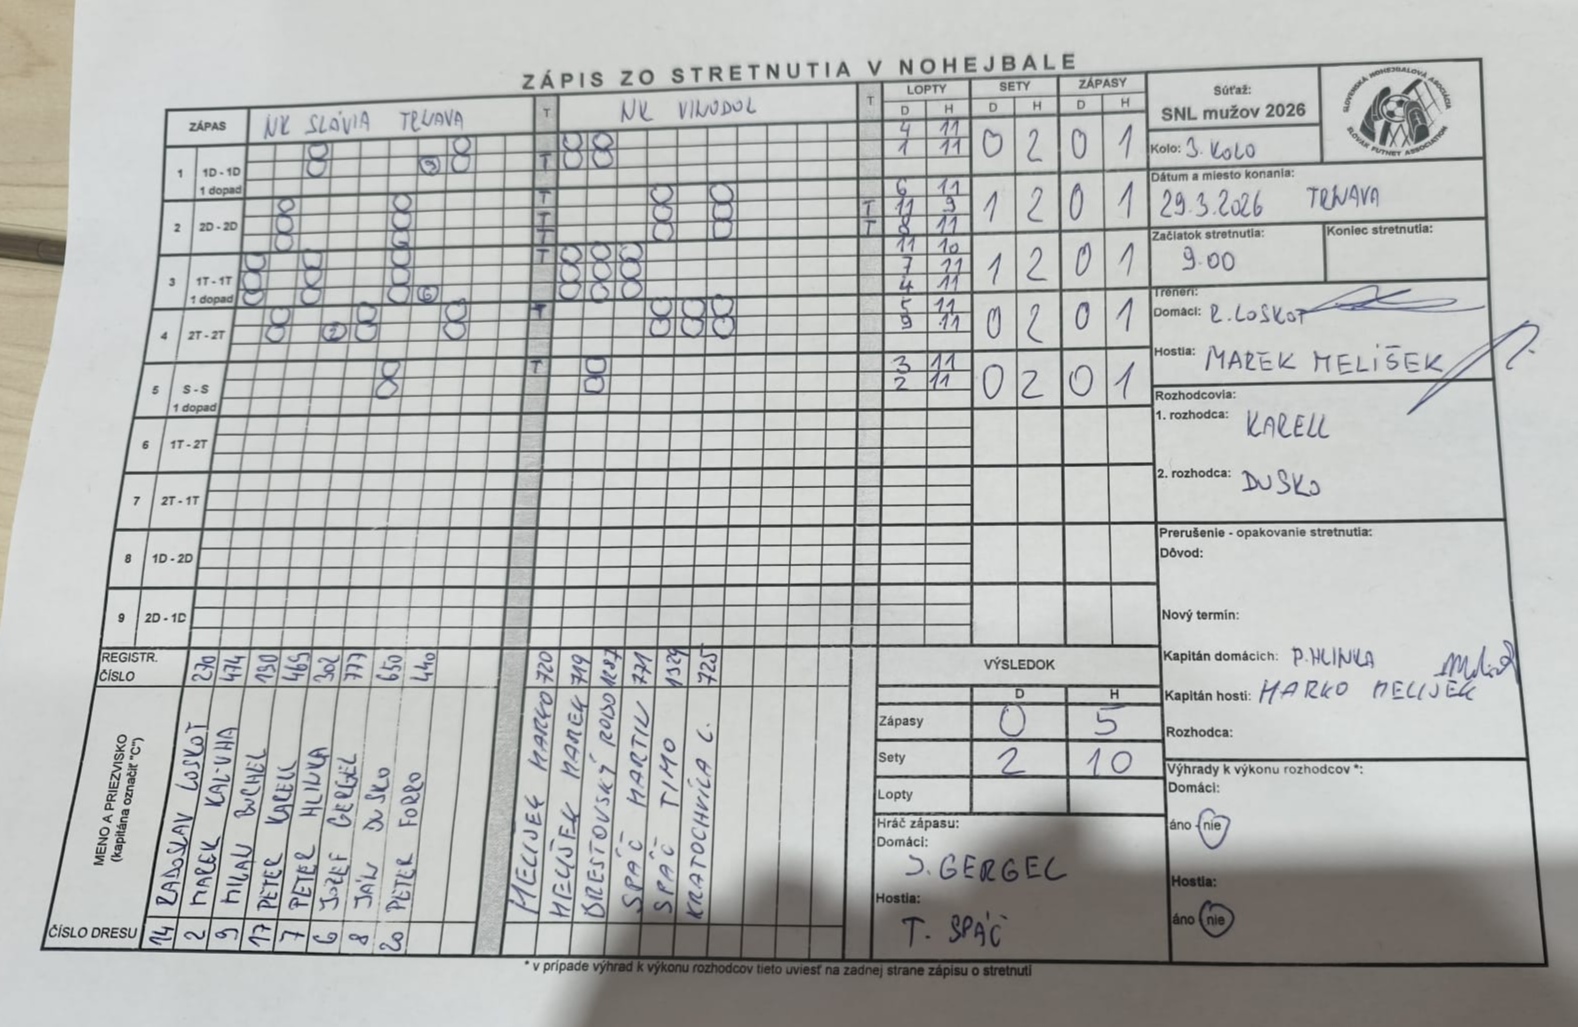 ZÁPIS ZO STRETNUTIA V NOHEJBALE
ZÁPAS NK SLÁVIA TRNAVA T NK VINODOL T
LOPTY SETY ZÁPASY
D H D H D H
1 1D - 1D 1 dopad T 4 11 1 11 0 2 0 1
2 2D - 2D T T T 6 11 T 11 9 T 8 11 1 2 0 1
3 1T - 1T 1 dopad T 11 10 7 11 4 11 1 2 0 1
4 2T - 2T T 5 11 9 11 0 2 0 1
5 S - S 1 dopad T 3 11 2 11 0 2 0 1
6 1T - 2T
7 2T - 1T
8 1D - 2D
9 2D - 1D
Súťaž:
SNL mužov 2026
SLOVENSKÁ NOHEJBALOVÁ ASOCIÁCIA
SLOVAK FUTNET ASSOCIATION
Kolo: 3. KOLO
Dátum a miesto konania:
29.3.2026 TRNAVA
Začiatok stretnutia: 9.00
Koniec stretnutia:
Tréneri:
Domáci: R. LOSKOT
Hostia: MAREK MELIŠEK
Rozhodcovia:
1. rozhodca: KARELL
2. rozhodca: DUSKO
Prerušenie - opakovanie stretnutia:
Dôvod:
Nový termín:
Kapitán domácich: P. HLINKA
Kapitán hostí: MARKO MELIJEK
Rozhodca:
Výhrady k výkonu rozhodcov *:
Domáci:
áno nie
Hostia:
áno nie
REGISTR. ČÍSLO
MENO A PRIEZVISKO
(kapitána označiť "C")
ČÍSLO DRESU
14 RADOSLAV LOSKOT 270
2 MAREK KALUHA 474
9 MILAN BUCHEL 190
17 PETER KARELL 469
7 PETER HLINKA 302
6 JOZEF GERGEL 777
8 JÁN DUSKO 650
20 PETER FORRO 440
MELIJEK MARKO 720
MELIŠEK MAREK 719
BRESTOVSKÝ ROBO 1187
SPÁČ MARTIN 771
SPÁČ TIMO 1329
KRATOCHVÍLA L. 725
VÝSLEDOK
D H
Zápasy 0 5
Sety 2 10
Lopty
Hráč zápasu:
Domáci:
J. GERGEL
Hostia:
T. SPÁČ
* v prípade výhrad k výkonu rozhodcov tieto uviesť na zadnej strane zápisu o stretnutí